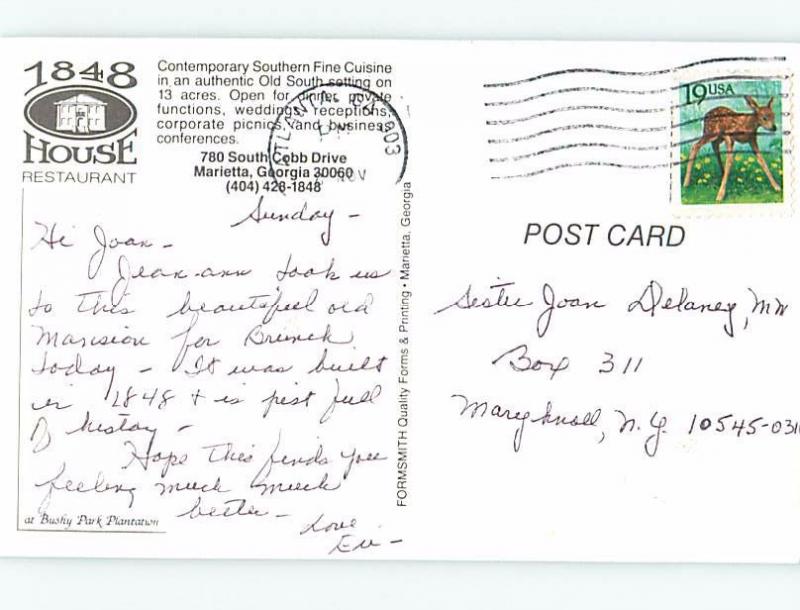 1848
HOUSE
RESTAURANT
Contemporary Southern Fine Cuisine
in an authentic Old South setting on
13 acres. Open for dinner, private
functions, weddings, receptions,
corporate picnics, and business
conferences.
780 South Cobb Drive
Marietta, Georgia 30060
(404) 428-1848
NOV
19USA
POST CARD
Sunday -
Hi Joan -
Jean-ann took us
to this beautiful old
Mansion for Brunch
today - It was built
in 1848 + is just full
of history -
Hope this finds you
feeling much much
better -
Love
Ev -
at Bushy Park Plantation
FORMSMITH Quality Forms & Printing • Marietta, Georgia
Sister Joan Delaney, MM
Box 311
Maryknoll, N.Y. 10545-0311